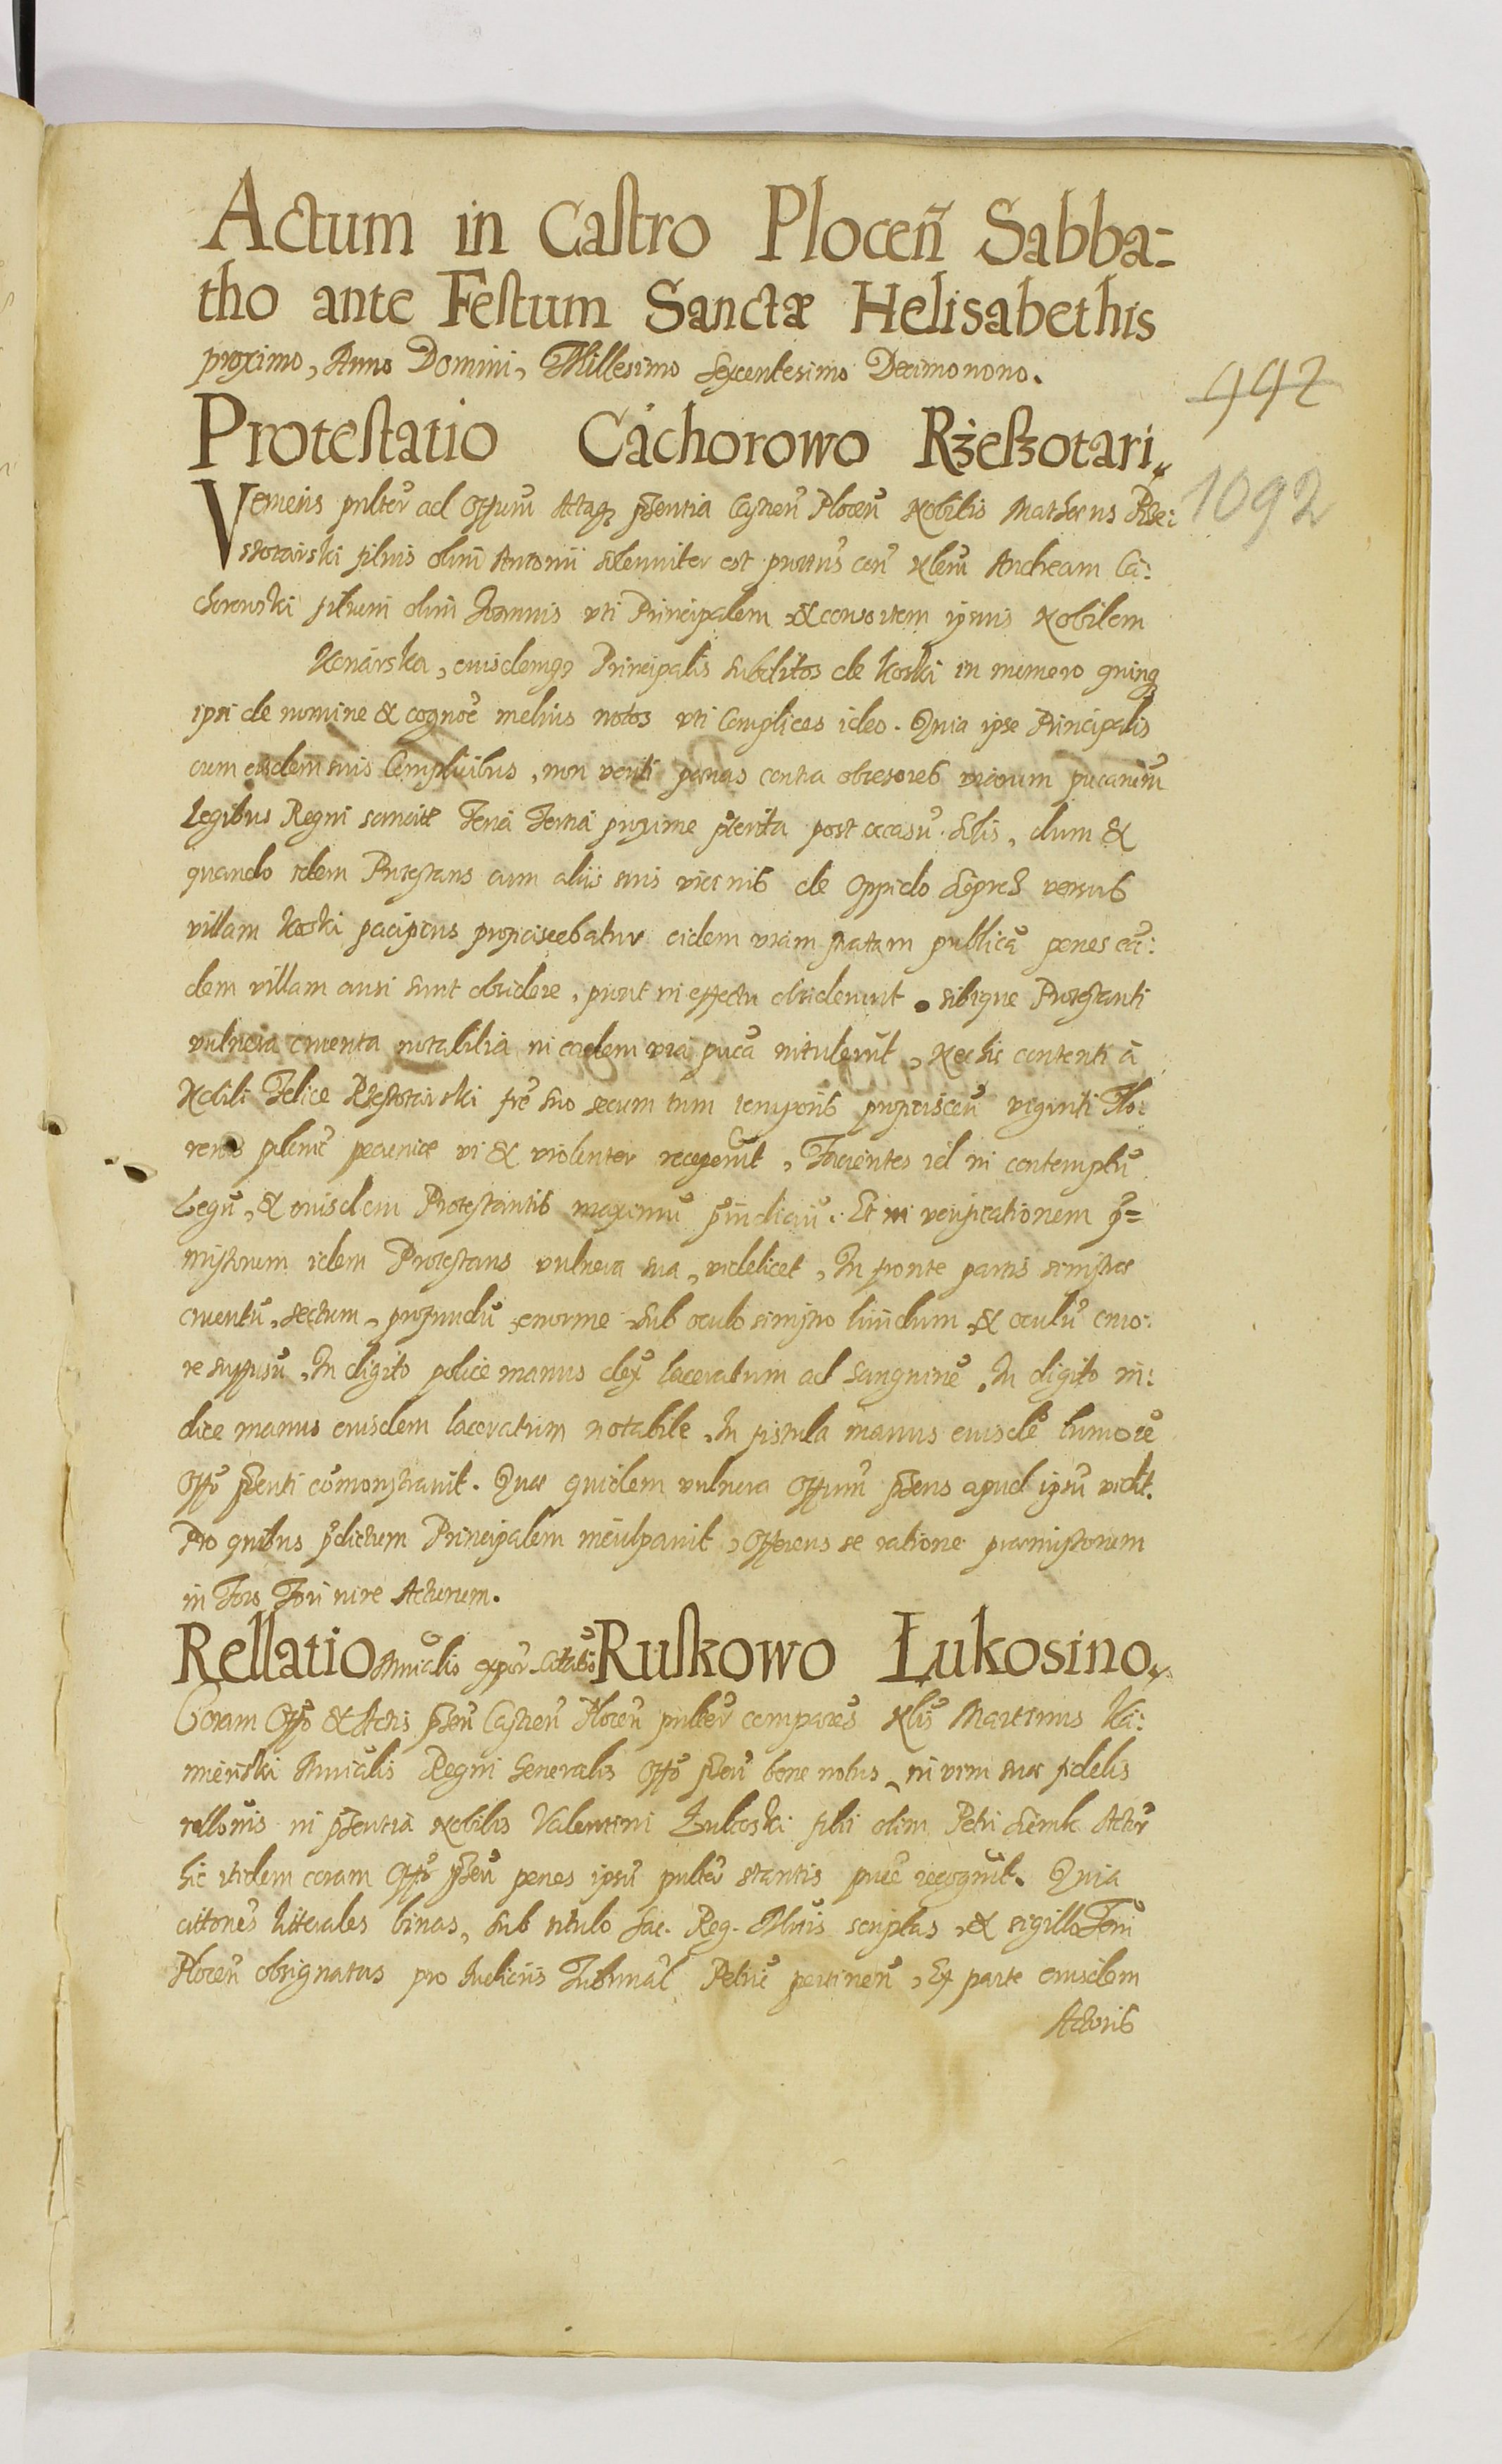 Actum in Castro Plocen̄ Sabba-
tho ante Festum Sanctæ Helisabethis
proximo, Anno Domini, Millesimo Sexcentesimo Decimonono.
442
Protestatio Cáchorowo Rżeszotari
1092
Veniens pnlter ad Offum Actaq, pntia Castren Plocen Nobilis Matheus Rze:
szotarski filius olim Antonii solenniter est prottus con Nlem Andream Ca:
chorowski filium olim Joannis uti Principalem & consortem ipsius Nobilem
Konárska, eiusdemq, Principalis subditos de Koski in numero quinq,
ipsi de nomine & cognoe melius notos uti Complices ideo. Quia ipse Principalis
cum eisdem suis Complicibus, non veriti pænas contra obsesores viarum pucarum
Legibus Regni sancitæ Feria Tertia proxime pterita post occasu Solis, dum &
quando idem Protestans cum aliis suis vicinis de Oppido Sieprcz versus
villam Koski pacificus proficiscebatur eidem viam stratam publica penes ea:
dem villam ausi sunt obsidere, prout in effectu obsiderunt. sibique Protestanti
vulnera cruenta notabilia in eadem via puca intulerut, Nec hic contenti à
Nobili Felice Rzeszotarski fre suo secum tum temporis proficiscen viginti Flo:
renos polonic pecuniæ vi & violenter receperut, Facientes id in contemptu
Legu, & eiusdem Protestantis maximu pindiciu. Et in verificationem p=
missorum idem Protestans vulnera sua, videlicet, In fronte partis sinistræ
cruentu, sectum, profundu, enorme sub oculo sinistro lividum & oculu cruo:
re suffusu, In digito police manus dex laceratum ad sanguine, In digito in:
dice manus eiusdem laceratum notabile, In fistula manus eiusde tumore
Offo pnti comonstravit. Quæ quidem vulnera Offum pns apud ipsu vidit.
Pro quibus pdictum Principalem inculpavit, Offerens se ratione præmissorum
in Foro Fori iure Acturum.
Rellatio Mnialis expar Citatis Ruskowo Łukosino
Coram Offo & Actis pnn Castren Plocen pnlter comparens Nlis Martinus Ka:
mieński Mnialis Regni Generalis Offo pnn bene notus, in vim suæ fidelis
relloois in pntia Nobilis Valentini Łukoski filii olim Petri Actor
hic itidem coram Offo pnn penes ipsu pnlter stantis puce recognit. Quia
cittones litterales binas, sub titulo Sac. Reg. Mtis scriptas & sigillo Terri
Plocen obsignatas pro Iudiciis Tribunal Petric pertinen, Ex parte eiusdem
Actoris